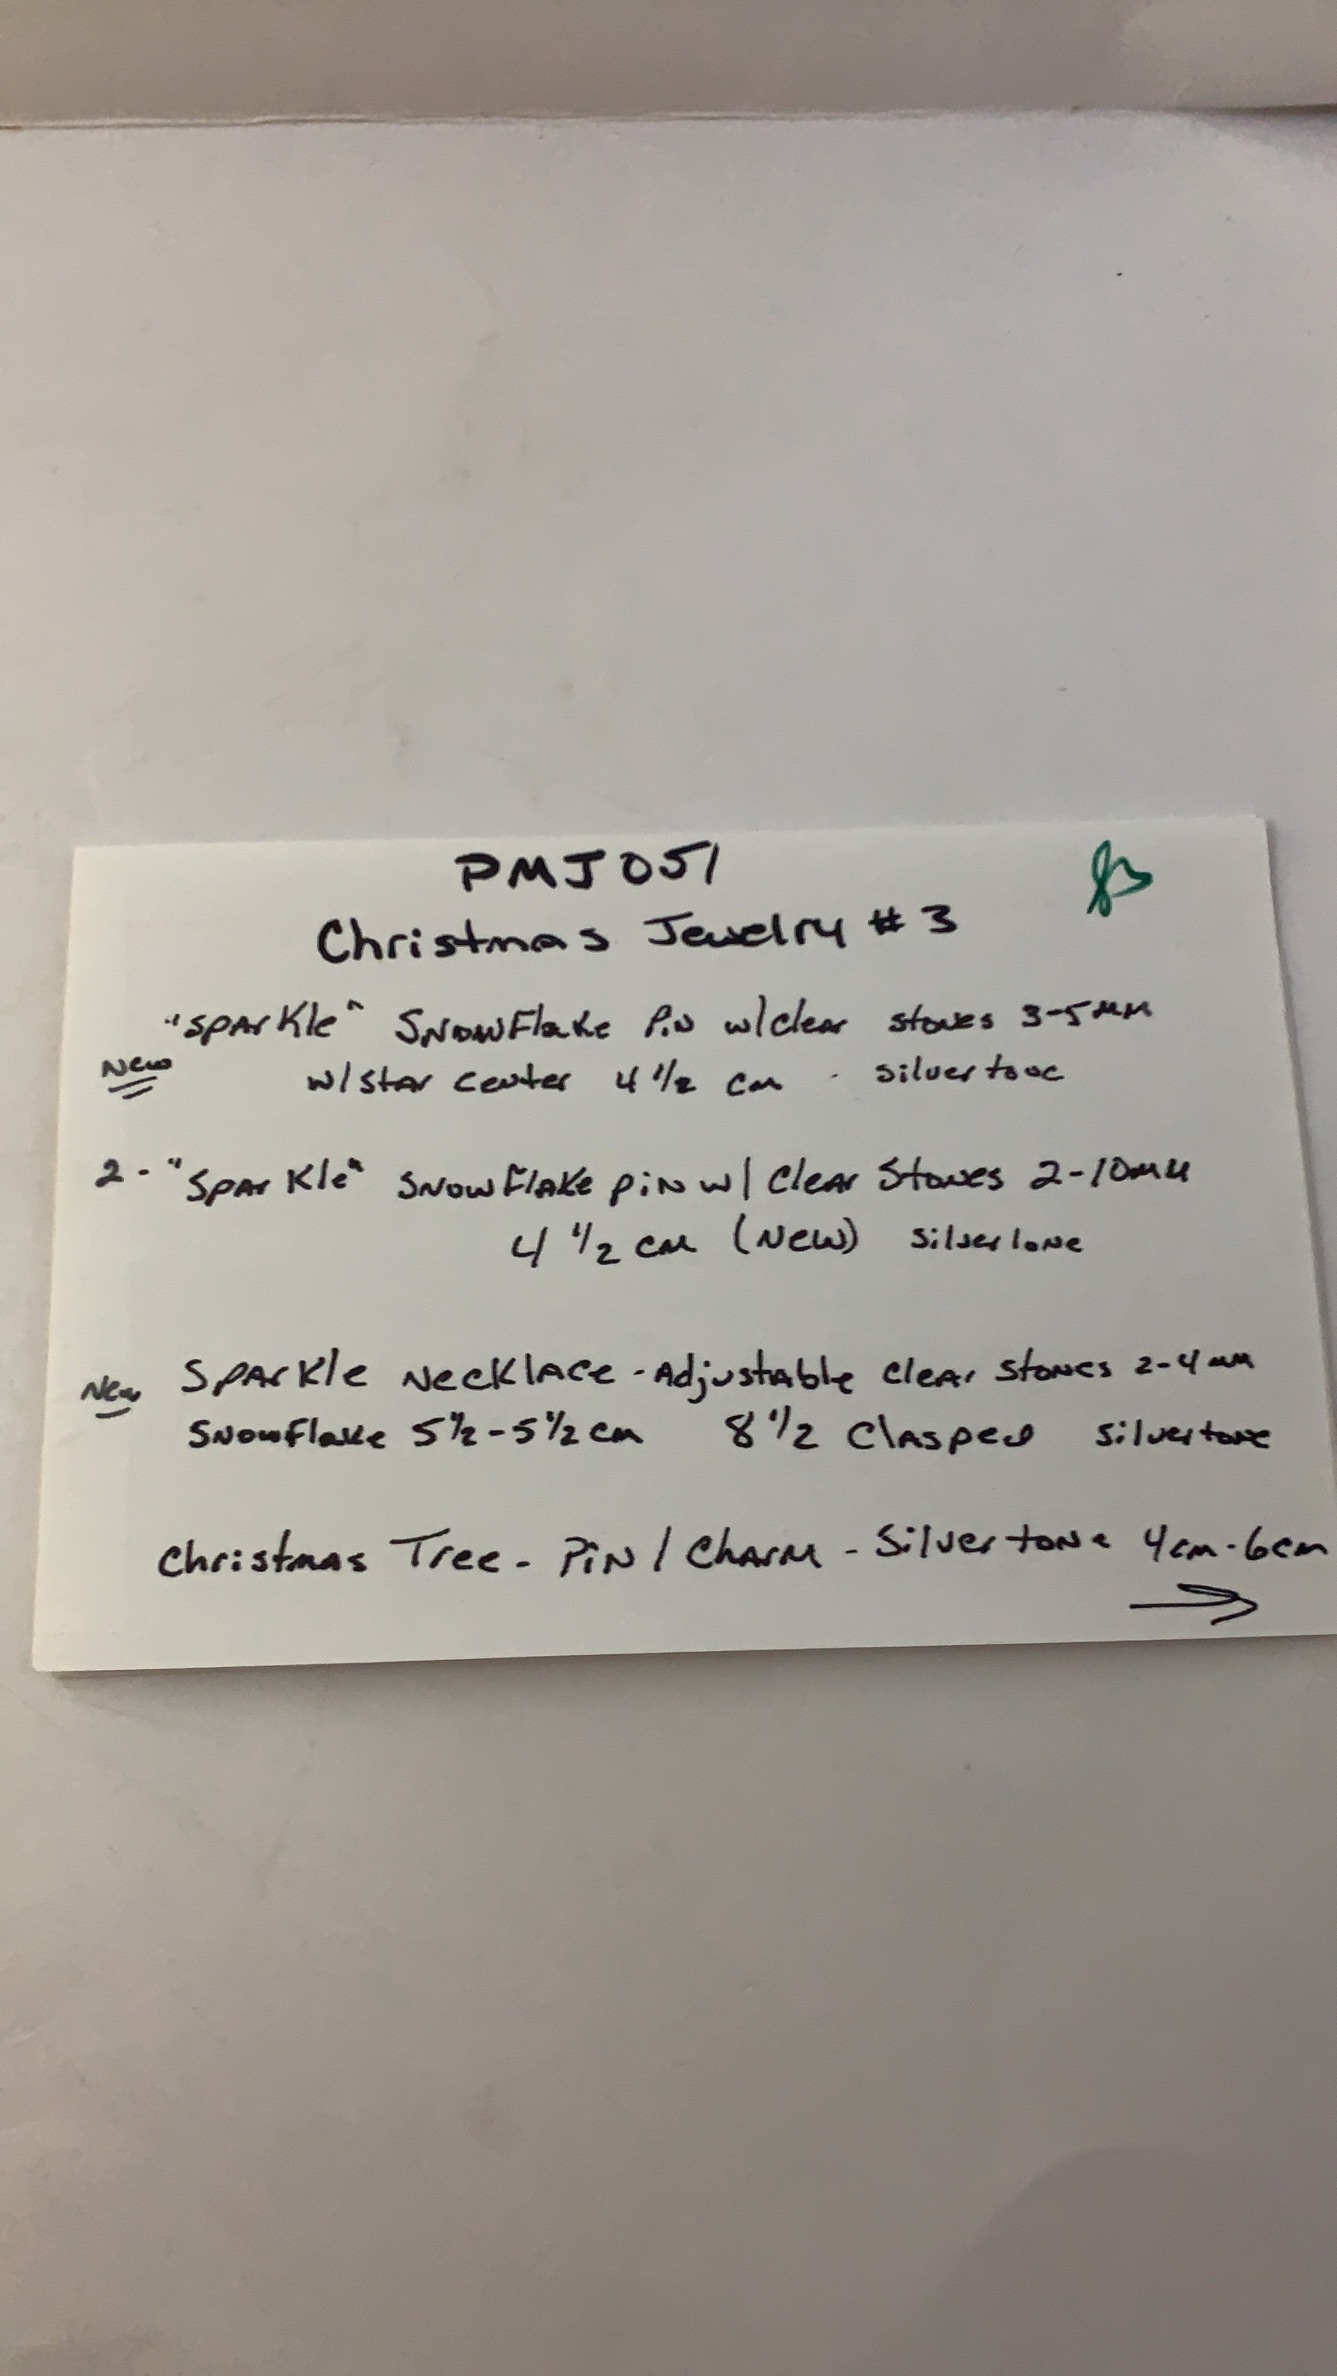 PMJ051
Christmas Jewelry #3
"Sparkle" Snowflake Pin w/clear stones 3-5mm
New
w/star center 4 1/2 cm - silvertone
2 - "Sparkle" Snowflake pin w/ Clear Stones 2-10mm
4 1/2 cm (New) silvertone
New Sparkle Necklace - Adjustable Clear Stones 2-4mm
Snowflake 5 1/2 - 5 1/2 cm 8 1/2 Clasped silvertone
Christmas Tree - Pin / Charm - Silvertone 4cm - 6cm